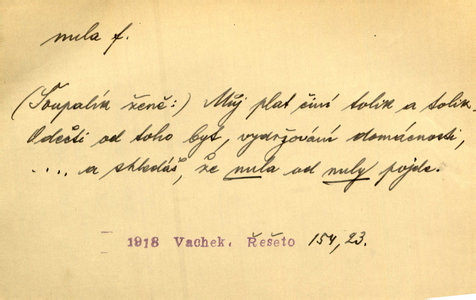 nula f.
(Šoupalík ženě:) Můj plat činí tolik a tolik.
Odečti od toho byt, vydržování domácnosti,
.... a shledáš, že nula od nuly pojde.
1918 Vachek, Řešeto 154, 23.